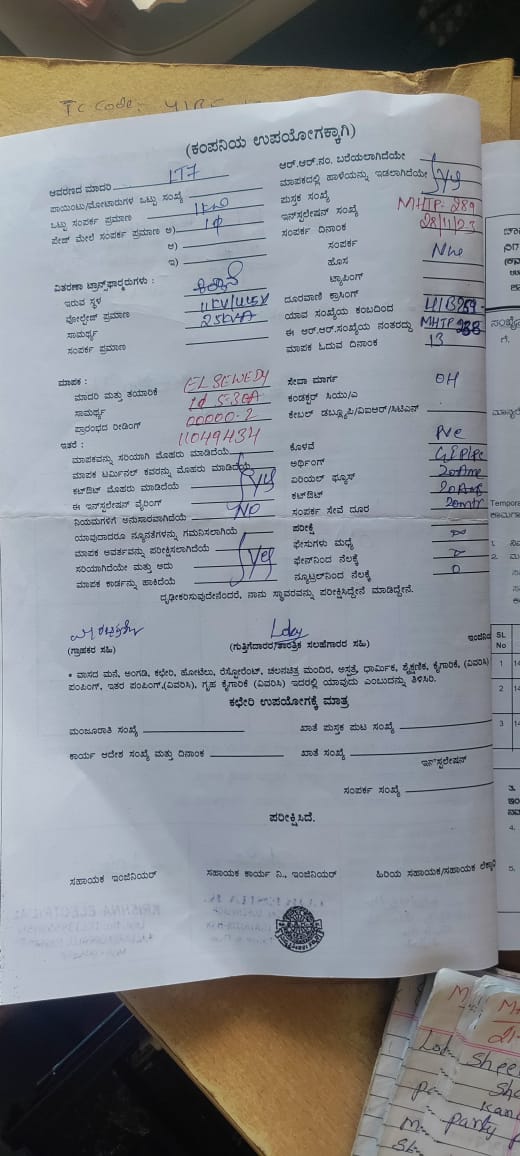 Tc code:
(ಕಂಪನಿಯ ಉಪಯೋಗಕ್ಕಾಗಿ)
ಆವರಣದ ಮಾದರಿ 1T7
ಪಾಯಿಂಟು/ಮೋಟಾರುಗಳ ಒಟ್ಟು ಸಂಖ್ಯೆ
ಒಟ್ಟು ಸಂಪರ್ಕ ಪ್ರಮಾಣ
ಪೇಜ್ ಮೇಲೆ ಸಂಪರ್ಕ ಪ್ರಮಾಣ ಅ) 1ϕ
ಆ)
ಇ)
ಆರ್.ಆರ್.ನಂ. ಬರೆಯಲಾಗಿದೆಯೇ
ಮಾಪಕದಲ್ಲಿ ಹಾಳೆಯನ್ನು ಇಡಲಾಗಿದೆಯೇ yes
ಪುಸ್ತಕ ಸಂಖ್ಯೆ
ಇನ್‌ಸ್ಟಲೇಷನ್ ಸಂಖ್ಯೆ MHTP-289
ಸಂಪರ್ಕ ದಿನಾಂಕ 28/11/23
ಸಂಪರ್ಕ
ಹೊಸ New
ಟ್ಯಾಪಿಂಗ್
ವಿತರಣಾ ಟ್ರಾನ್ಸ್‌ಫಾರ್ಮರುಗಳು :
ಇರುವ ಸ್ಥಳ
ವೋಲ್ಟೇಜ್ ಪ್ರಮಾಣ 11KV/415V
ಸಾಮರ್ಥ್ಯ 25KVA
ಸಂಪರ್ಕ ಪ್ರಮಾಣ
ದೂರವಾಣಿ ಕ್ರಾಸಿಂಗ್
ಯಾವ ಸಂಖ್ಯೆಯ ಕಂಬದಿಂದ
ಈ ಆರ್.ಆರ್.ಸಂಖ್ಯೆಯ ನಂತರದ್ದು MHTP 288
ಮಾಪಕ ಓದುವ ದಿನಾಂಕ 13
ಮಾಪಕ :
ಮಾದರಿ ಮತ್ತು ತಯಾರಿಕೆ ELSEWEDY
ಸಾಮರ್ಥ್ಯ 1ϕ 5-30A
ಪ್ರಾರಂಭದ ರೀಡಿಂಗ್ 00000.2
11049434
ಸೇವಾ ಮಾರ್ಗ OH
ಕಂಡಕ್ಟರ್ ಸಿಯು/ಎ
ಕೇಬಲ್ ಡಬ್ಲ್ಯೂಪಿ/ವಿಐಆರ್/ಸಿಟಿಎನ್
ಇತರೆ :
ಮಾಪಕವನ್ನು ಸರಿಯಾಗಿ ಮೊಹರು ಮಾಡಿದೆಯೆ
ಮಾಪಕ ಟರ್ಮಿನಲ್ ಕವರನ್ನು ಮೊಹರು ಮಾಡಿದೆಯೆ
ಕಟ್‌ಔಟ್ ಮೊಹರು ಮಾಡಿದೆಯೆ yes
ಈ ಇನ್‌ಸ್ಟಲೇಷನ್ ವೈರಿಂಗ್
ನಿಯಮಗಳಿಗೆ ಅನುಸಾರವಾಗಿದೆಯೆ NO
ಯಾವುದಾದರೂ ನ್ಯೂನತೆಗಳನ್ನು ಗಮನಿಸಲಾಗಿಯೆ
ಮಾಪಕ ಆವರ್ತವನ್ನು ಪರೀಕ್ಷಿಸಲಾಗಿದೆಯೆ
ಸರಿಯಾಗಿದೆಯೇ ಮತ್ತು ಅದು yes
ಮಾಪಕ ಕಾರ್ಡನ್ನು ಹಾಕಿದೆಯೆ
ಕೊಳವೆ
ಅರ್ಥಿಂಗ್
ಏರಿಯಲ್ ಫ್ಯೂಸ್
ಕಟ್‌ಔಟ್
ಸಂಪರ್ಕ ಸೇವೆ ದೂರ 20mtr
ಪರೀಕ್ಷೆ
ಫೇಸುಗಳು ಮಧ್ಯೆ
ಫೇಸ್‌ನಿಂದ ನೆಲಕ್ಕೆ
ನ್ಯೂಟ್ರಲ್‌ನಿಂದ ನೆಲಕ್ಕೆ 0
ದೃಢೀಕರಿಸುವುದೇನೆಂದರೆ, ನಾನು ಸ್ಥಾವರವನ್ನು ಪರೀಕ್ಷಿಸಿದ್ದೇನೆ ಮಾಡಿದ್ದೇನೆ.
(ಗ್ರಾಹಕರ ಸಹಿ) (ಗುತ್ತಿಗೆದಾರರ/ತಾಂತ್ರಿಕ ಸಲಹೆಗಾರರ ಸಹಿ)
• ವಾಸದ ಮನೆ, ಅಂಗಡಿ, ಕಛೇರಿ, ಹೋಟೆಲು, ರೆಸ್ಟೋರೆಂಟ್, ಚಲನಚಿತ್ರ ಮಂದಿರ, ಆಸ್ಪತ್ರೆ, ಧಾರ್ಮಿಕ, ಶೈಕ್ಷಣಿಕ, ಕೈಗಾರಿಕೆ, (ವಿವರಿಸಿ)
ಪಂಪಿಂಗ್, ಇತರ ಪಂಪಿಂಗ್,(ವಿವರಿಸಿ), ಗೃಹ ಕೈಗಾರಿಕೆ (ವಿವರಿಸಿ) ಇದರಲ್ಲಿ ಯಾವುದು ಎಂಬುದನ್ನು ತಿಳಿಸಿರಿ.
ಕಛೇರಿ ಉಪಯೋಗಕ್ಕೆ ಮಾತ್ರ
ಮಂಜೂರಾತಿ ಸಂಖ್ಯೆ ಖಾತೆ ಪುಸ್ತಕ ಪುಟ ಸಂಖ್ಯೆ
ಕಾರ್ಯ ಆದೇಶ ಸಂಖ್ಯೆ ಮತ್ತು ದಿನಾಂಕ ಖಾತೆ ಸಂಖ್ಯೆ
ಇನ್‌ಸ್ಟಲೇಷನ್
ಸಂಪರ್ಕ ಸಂಖ್ಯೆ
ಪರೀಕ್ಷಿಸಿದೆ.
ಸಹಾಯಕ ಇಂಜಿನಿಯರ್ ಸಹಾಯಕ ಕಾರ್ಯ ನಿ., ಇಂಜಿನಿಯರ್ ಹಿರಿಯ ಸಹಾಯಕ/ಸಹಾಯಕ
SL
No
1
2
3
Lot
Party